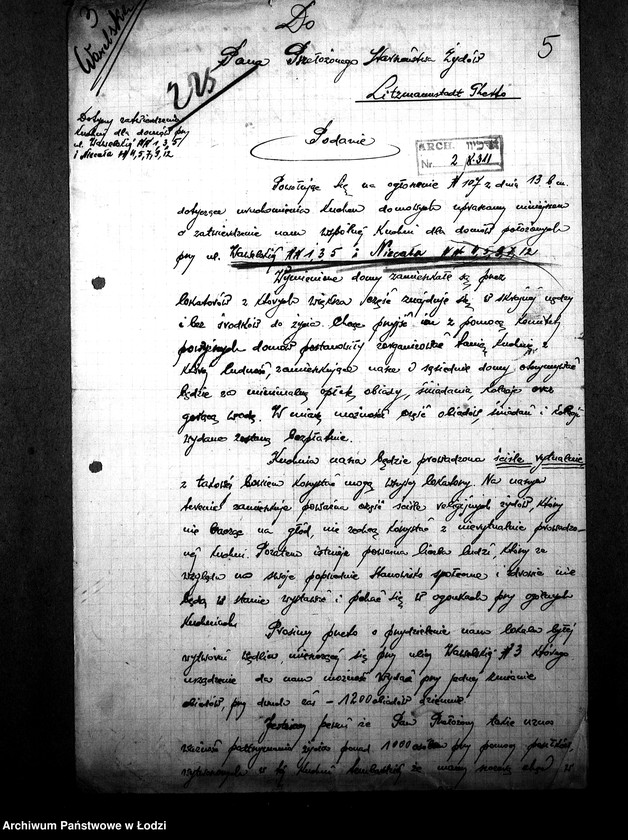 3
Wawelska
Do
5
Pana Przełożonego Starszeństwa Żydów
Litzmannstadt Ghetto
225
Dotyczy zatwierdzenia
kuchni dla domów przy
ul. Wawelskiej NN 1, 3, 5/
i Niecała NN 4, 5, 7, 9, 12
Podanie
ARCH.
Nr. 2
Powołując się na ogłoszenie N 107 z dnia 13 b.m.
dotyczące uruchomienia kuchen domowych upraszamy niniejszem
o zatwierdzenie nam wspólnej kuchni dla domów położonych
przy ul. Wawelskiej NN 1 3 5 i Niecała NN 4, 5, 9, 7, 12
Wymienione domy zamieszkałe są przez
lokatorów z których większa część znajduje się w skrajnej nędzy
i bez środków do życia. Chcąc przyjść im z pomocą komitety
powyższych domów postanowiły zorganizować tanią kuchnię, z
której ludność, zamieszkująca nasze i sąsiednie domy otrzymywać
będzie za minimalną opłatą obiady, śniadania, kolacje oraz
gorącą wodę. W miarę możności część obiadów, śniadań i kolacji
wydana zostaną bezpłatnie.
Kuchnia nasza będzie prowadzona ściśle rytualnie
z takowej bowiem korzystać mogą wszyscy lokatorzy. Na naszym
terenie zamieszkuje poważna część ściśle religijnych żydów, którzy
nie bacząc na głód, nie zechcą korzystać z nierytualnie prowadzo-
nej kuchni. Pozatem istnieje poważna liczba ludzi, którzy ze
względu na swoje poprzednie stanowisko społeczne i zdrowie nie
będą w stanie wystawać i pchać się w ogonkach przy ogólnych
kuchniach.
Prosimy przeto o przydzielenie nam lokalu byłej
wytwórni wędlin, mieszczącej się przy ulicy Wawelskiej N 3 którego
urządzenie da nam możność wydać przy jednej zmianie
obiadów, przy dwóch zaś - 1200 obiadów dziennie.
Jesteśmy pewni że Pan Przełożony także uzna
ponad 1000 osób przy pomocy posiłków,
w tej kuchni
Archiwum Państwowe w Łodzi